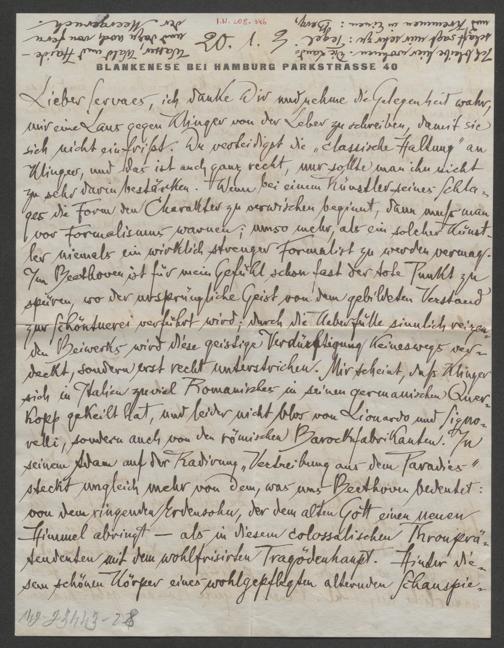 I.N. 208.346
20. 1. 3.
Ich bleibe hier wohnen. Die Land-
schaft sagt mir sehr zu:
und in Einem: Berg,
Wasser, Wald und Haide –
und dazu noch von fern
der Meergeruch.
BLANKENESE BEI HAMBURG PARKSTRASSE 40
Lieber Servaes, ich danke Dir und nehme die Gelegenheit wahr,
mir eine Laus gegen Klinger von der Leber zu schreiben, damit sie
sich nicht einfrißt. Du verteidigst die „classische Haltung" an
Klinger, und das ist auch ganz recht, nur sollte man ihn nicht
zu sehr darin bestärken. Wenn bei einem Künstler seines Schla-
ges die Form den Charakter zu verwischen beginnt, dann muß man
vor Formalismus warnen; umso mehr, als ein solcher Künst-
ler niemals ein wirklich strenger Formalist zu werden vermag.
Im Beethoven ist für mein Gefühl schon fast der tote Punkt zu
spüren, wo der ursprüngliche Geist von dem gebildeten Verstand
zur Schöntuerei verführt wird; durch die Ueberfülle sinnlich reizen-
den Beiwerks wird diese geistige Verdürftigung keineswegs ver-
deckt, sondern erst recht unterstrichen. Mir scheint, daß Klinger
sich in Italien zuviel Romanisches in seinen germanischen Quer-
kopf gekeilt hat, und leider nicht blos von Lionardo und Signo-
relli, sondern auch von den römischen Barockfabrikanten. In
seinem Adam auf der Radirung „Vertreibung aus dem Paradies"
steckt ungleich mehr von dem, was uns Beethoven bedeutet:
von dem ringenden Erdensohn, der dem alten Gott einen neuen
Himmel abringt – als in diesem colossalischen Thronprä-
tendenten mit dem wohlfrisirten Tragödenhaupt. Hinter die-
sem schönen Körper eines wohlgepflegten alternden Schauspie-